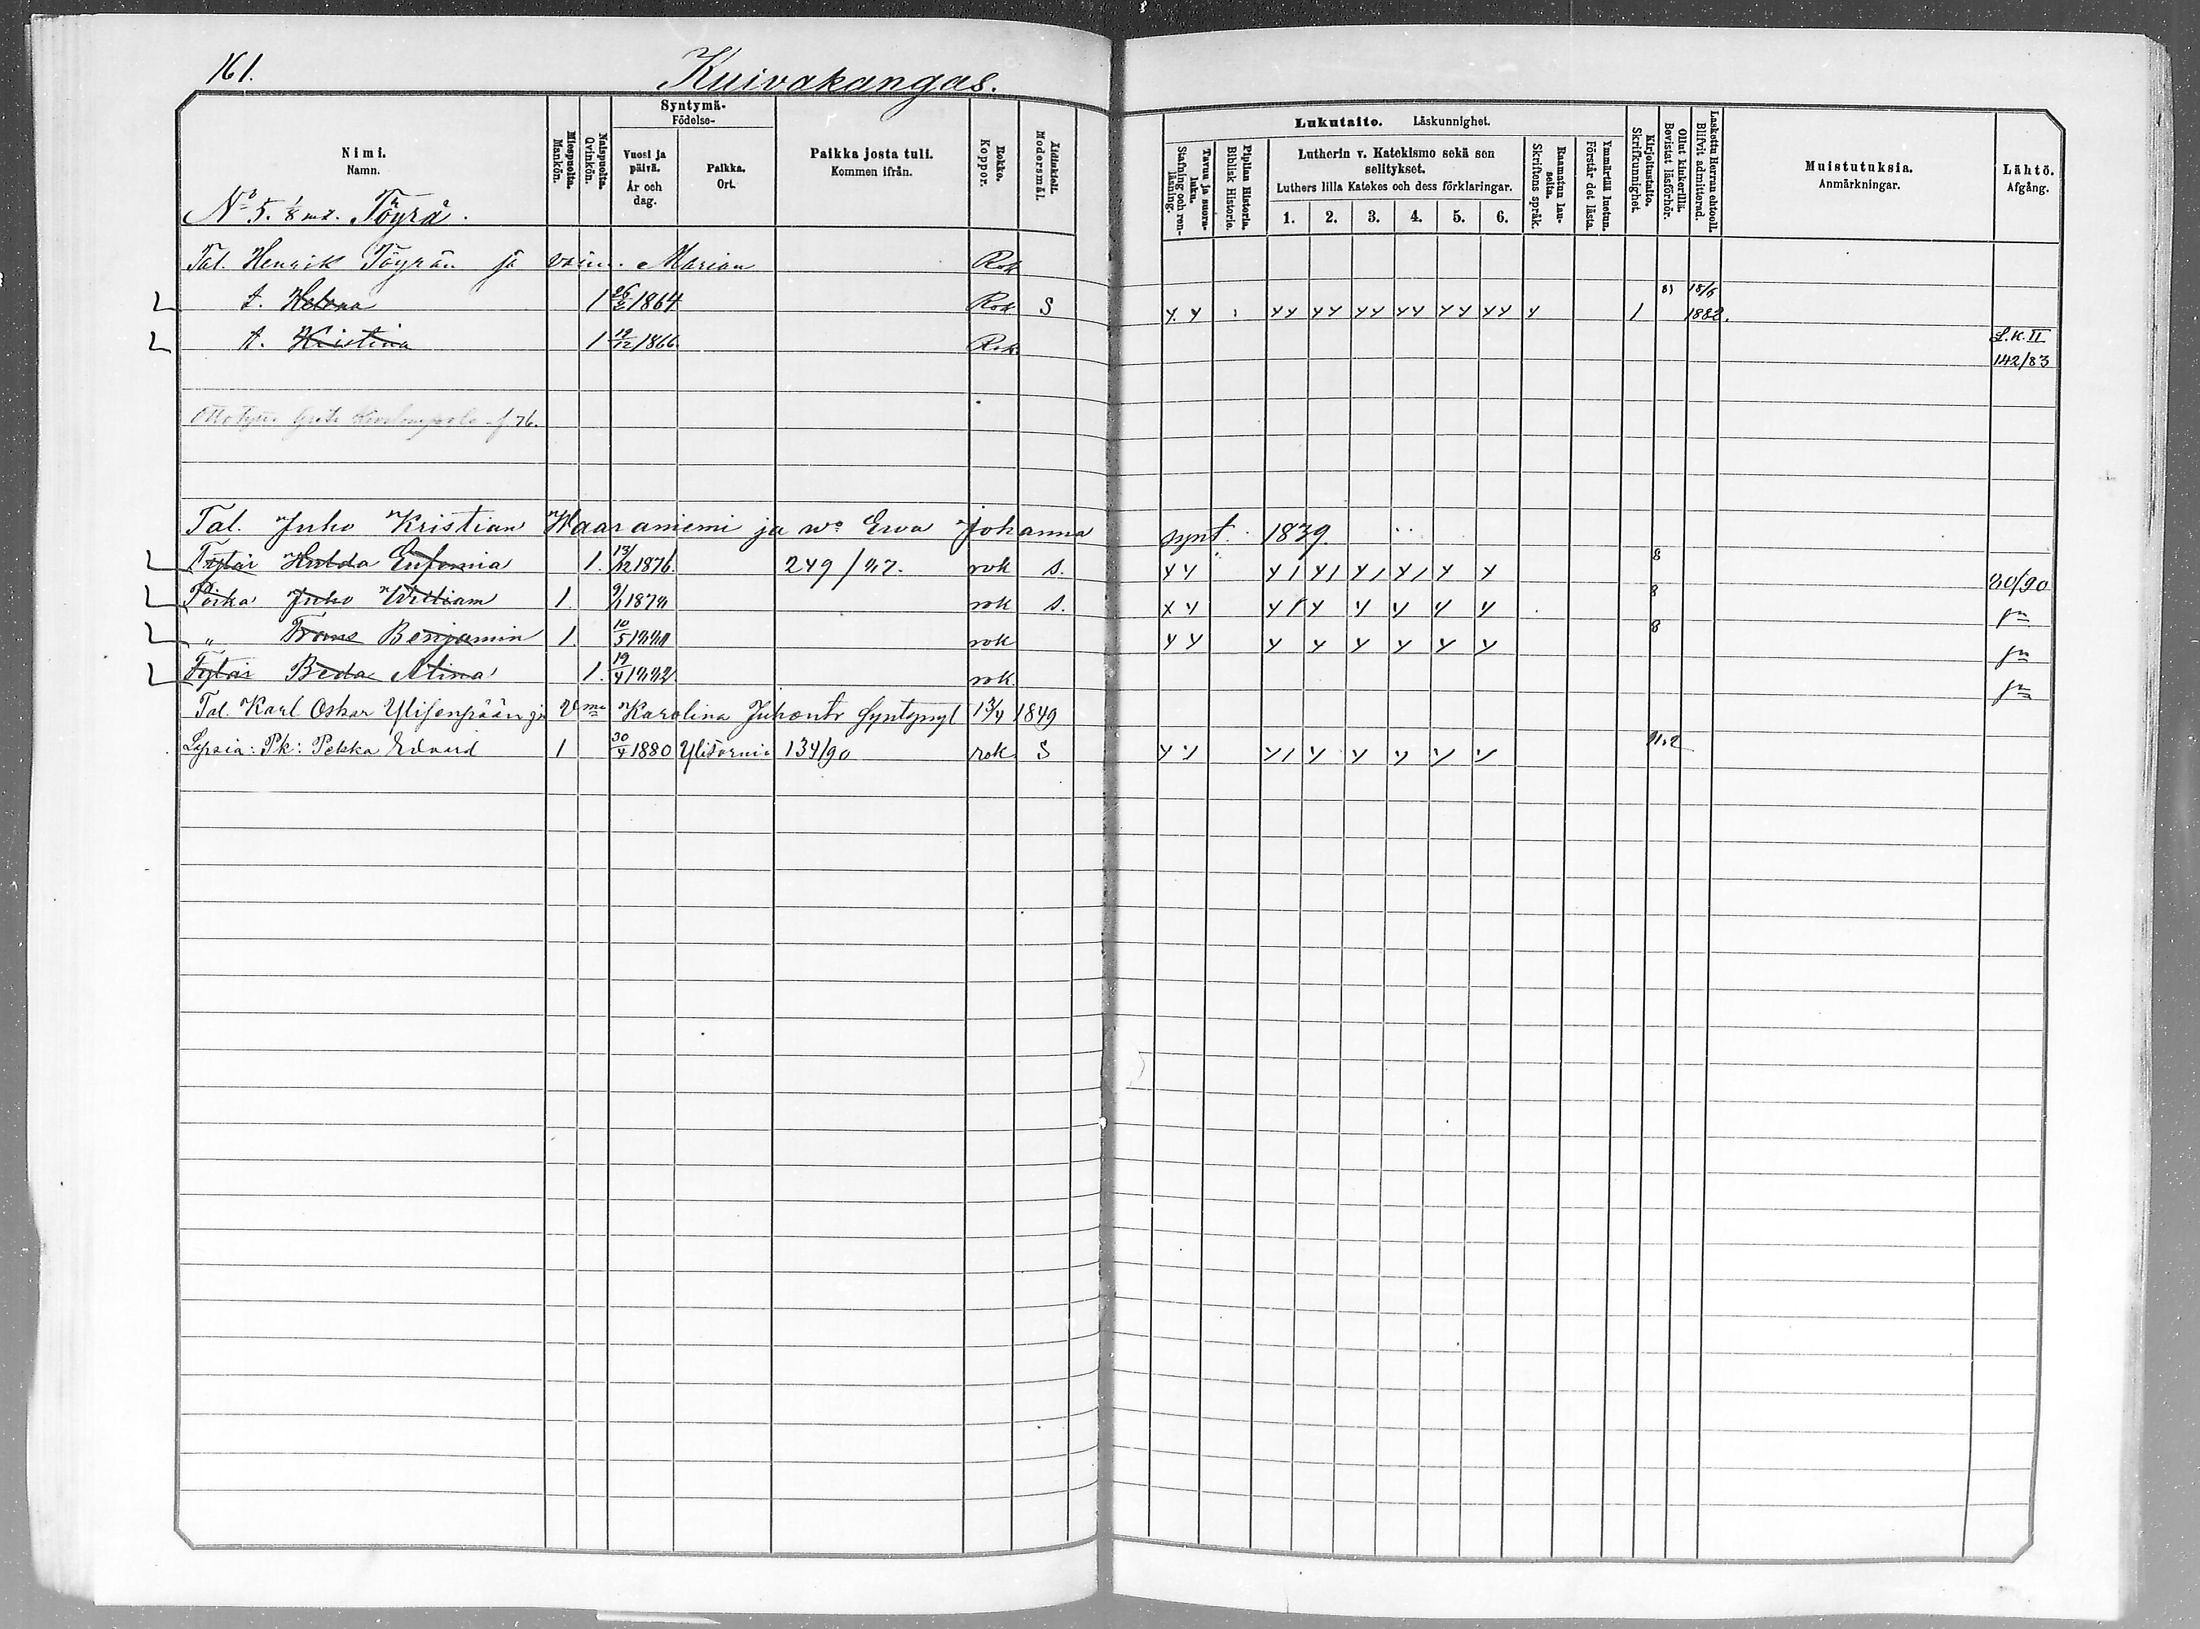 161.
Kuivakangas.
Nimi. Namn.
Miespuolia. Mankön.
Naispuolia. Qvinkön.
Syntymä- Födelse-
Vuosi ja päivä. År och dag.
Paikka. Ort.
Paikka josta tuli. Kommen ifrån.
Rokko. Koppor.
Äidinkieli. Modersmål.
Tavuu ja suora-luku. Stafning och ren-läsning.
Piplian Historia. Biblisk Historie.
Lukutaito. Läskunnighet.
Lutherin v. Katekismo sekä sen selitykset.
Luthers lilla Katekes och dess förklaringar.
1. 2. 3. 4. 5. 6.
Raamatun lau-seita. Skriftens språk.
Ymmärtää luetun. Förstår det lästa.
Kirjoitustaito. Skrifkunnighet.
Ollut kinkerillä. Bevistat läsförhör.
Laskettu Herran ehtooll. Blifvit admitterad.
Muistutuksia. Anmärkningar.
Lähtö. Afgång.
No 5. 1/8 mt. Töyrä.
Tal. Henrik Töyrän ja vaim. Marian Rok
t. Helena 1 26/2 1864 Rok S y y yy yy yy yy yy yy y 1 81 18/6 1882.
t. Kristina 1 12/12 1866 Rok L.K. II 142/83
f 76.
Tal. Juho Kristian Waaraniemi ja wo Ewa Johanna synt. 1839.
Tytär Hulda Eufemia 1. 13/12 1876. 249/87. rok s. y y y 1 y 1 y 1 y 1 y y 8 20/90
Poika Juho William 1. rok s. x y y 1 y y y y y 8
" Frans Benjamin 1. 10/5 1881 rok y y y y y y y y 8
Tytär Beda Alina 1. 19/4 1882 rok.
Tal. Karl Oskar Karolina 1849
Pk: Pekka Edvard 1 30/4 1880 Ylitornio 134/90 rok S y y y 1 y y y y y